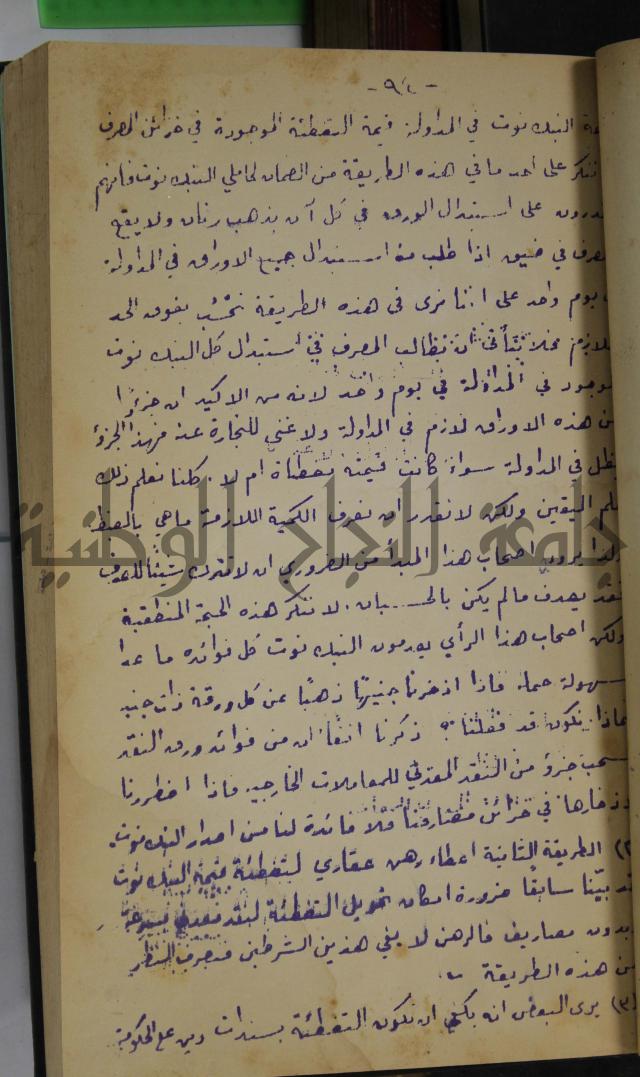 - ٩٤ -
البنك نوت في المداولة قيمة التغطئة الموجودة في خزائن المصرف
ننكر على احد ما في هذه الطريقة من الضمان لحاملي البنك نوت فانهم
على استبدال الورق في كل آن بذهب رنان ولا يقع
في ضيق اذا طلب منه استبدال جميع الاوراق في المداولة
يوم واحد على اننا نرى في هذه الطريقة تحسُّب يفوق الحد
ان نطالب المصرف في أستبدال كل البنك نوت
في المداولة في يوم واحد لانه من الاكيد ان جزءًا
من هذه الاوراق لازم في المداولة ولا غنى للتجارة عنه فهذا الجزؤ
يظل في المداولة سواء كانت قيمته مغطاة ام لا. كلنا نعلم ذلك
علم اليقين ولكن لا نقدر ان نعرف الكمية اللازمة ما هي بالضبط
ولذا يرون اصحاب هذا المبدأ من الضروري ان لا نترك شيئًا للصدف
فقد يصدف ما لم يكن بالحسبان. لا ننكر هذه الحجة المنطقية
ولكن اصحاب هذا الرأي يعدمون البنك نوت كل فوائده ما عدا
سهولة حمله فاذا ادخرنا جنيهًا ذهبًا عن كل ورقة ذات جنيه
فماذا نكون قد فعلنا؟ ذكرنا انفًا ان من فوائد ورق النقد
سحب جزؤ من النقد المعدني للمعاملات الخارجية فاذا اضطررنا
في خزائن مصارفنا فلا فائدة لنا من اصدار البنك نوت.
(٢) الطريقة الثانية اعطاء رهن عقاري لتغطئة قيمة البنك نوت
قد بيّنا سابقًا ضرورة امكان تحويل التغطئة لنقد معدني بسرعة
بدون مصاريف فالرهن لا يفي هذين الشرطين فنصرف النظر
عن هذه الطريقة
(٣) يرى البعض انه يكفي ان تكون التغطئة بسندات دين على الحكومة
جامعة النجاح الوطنية